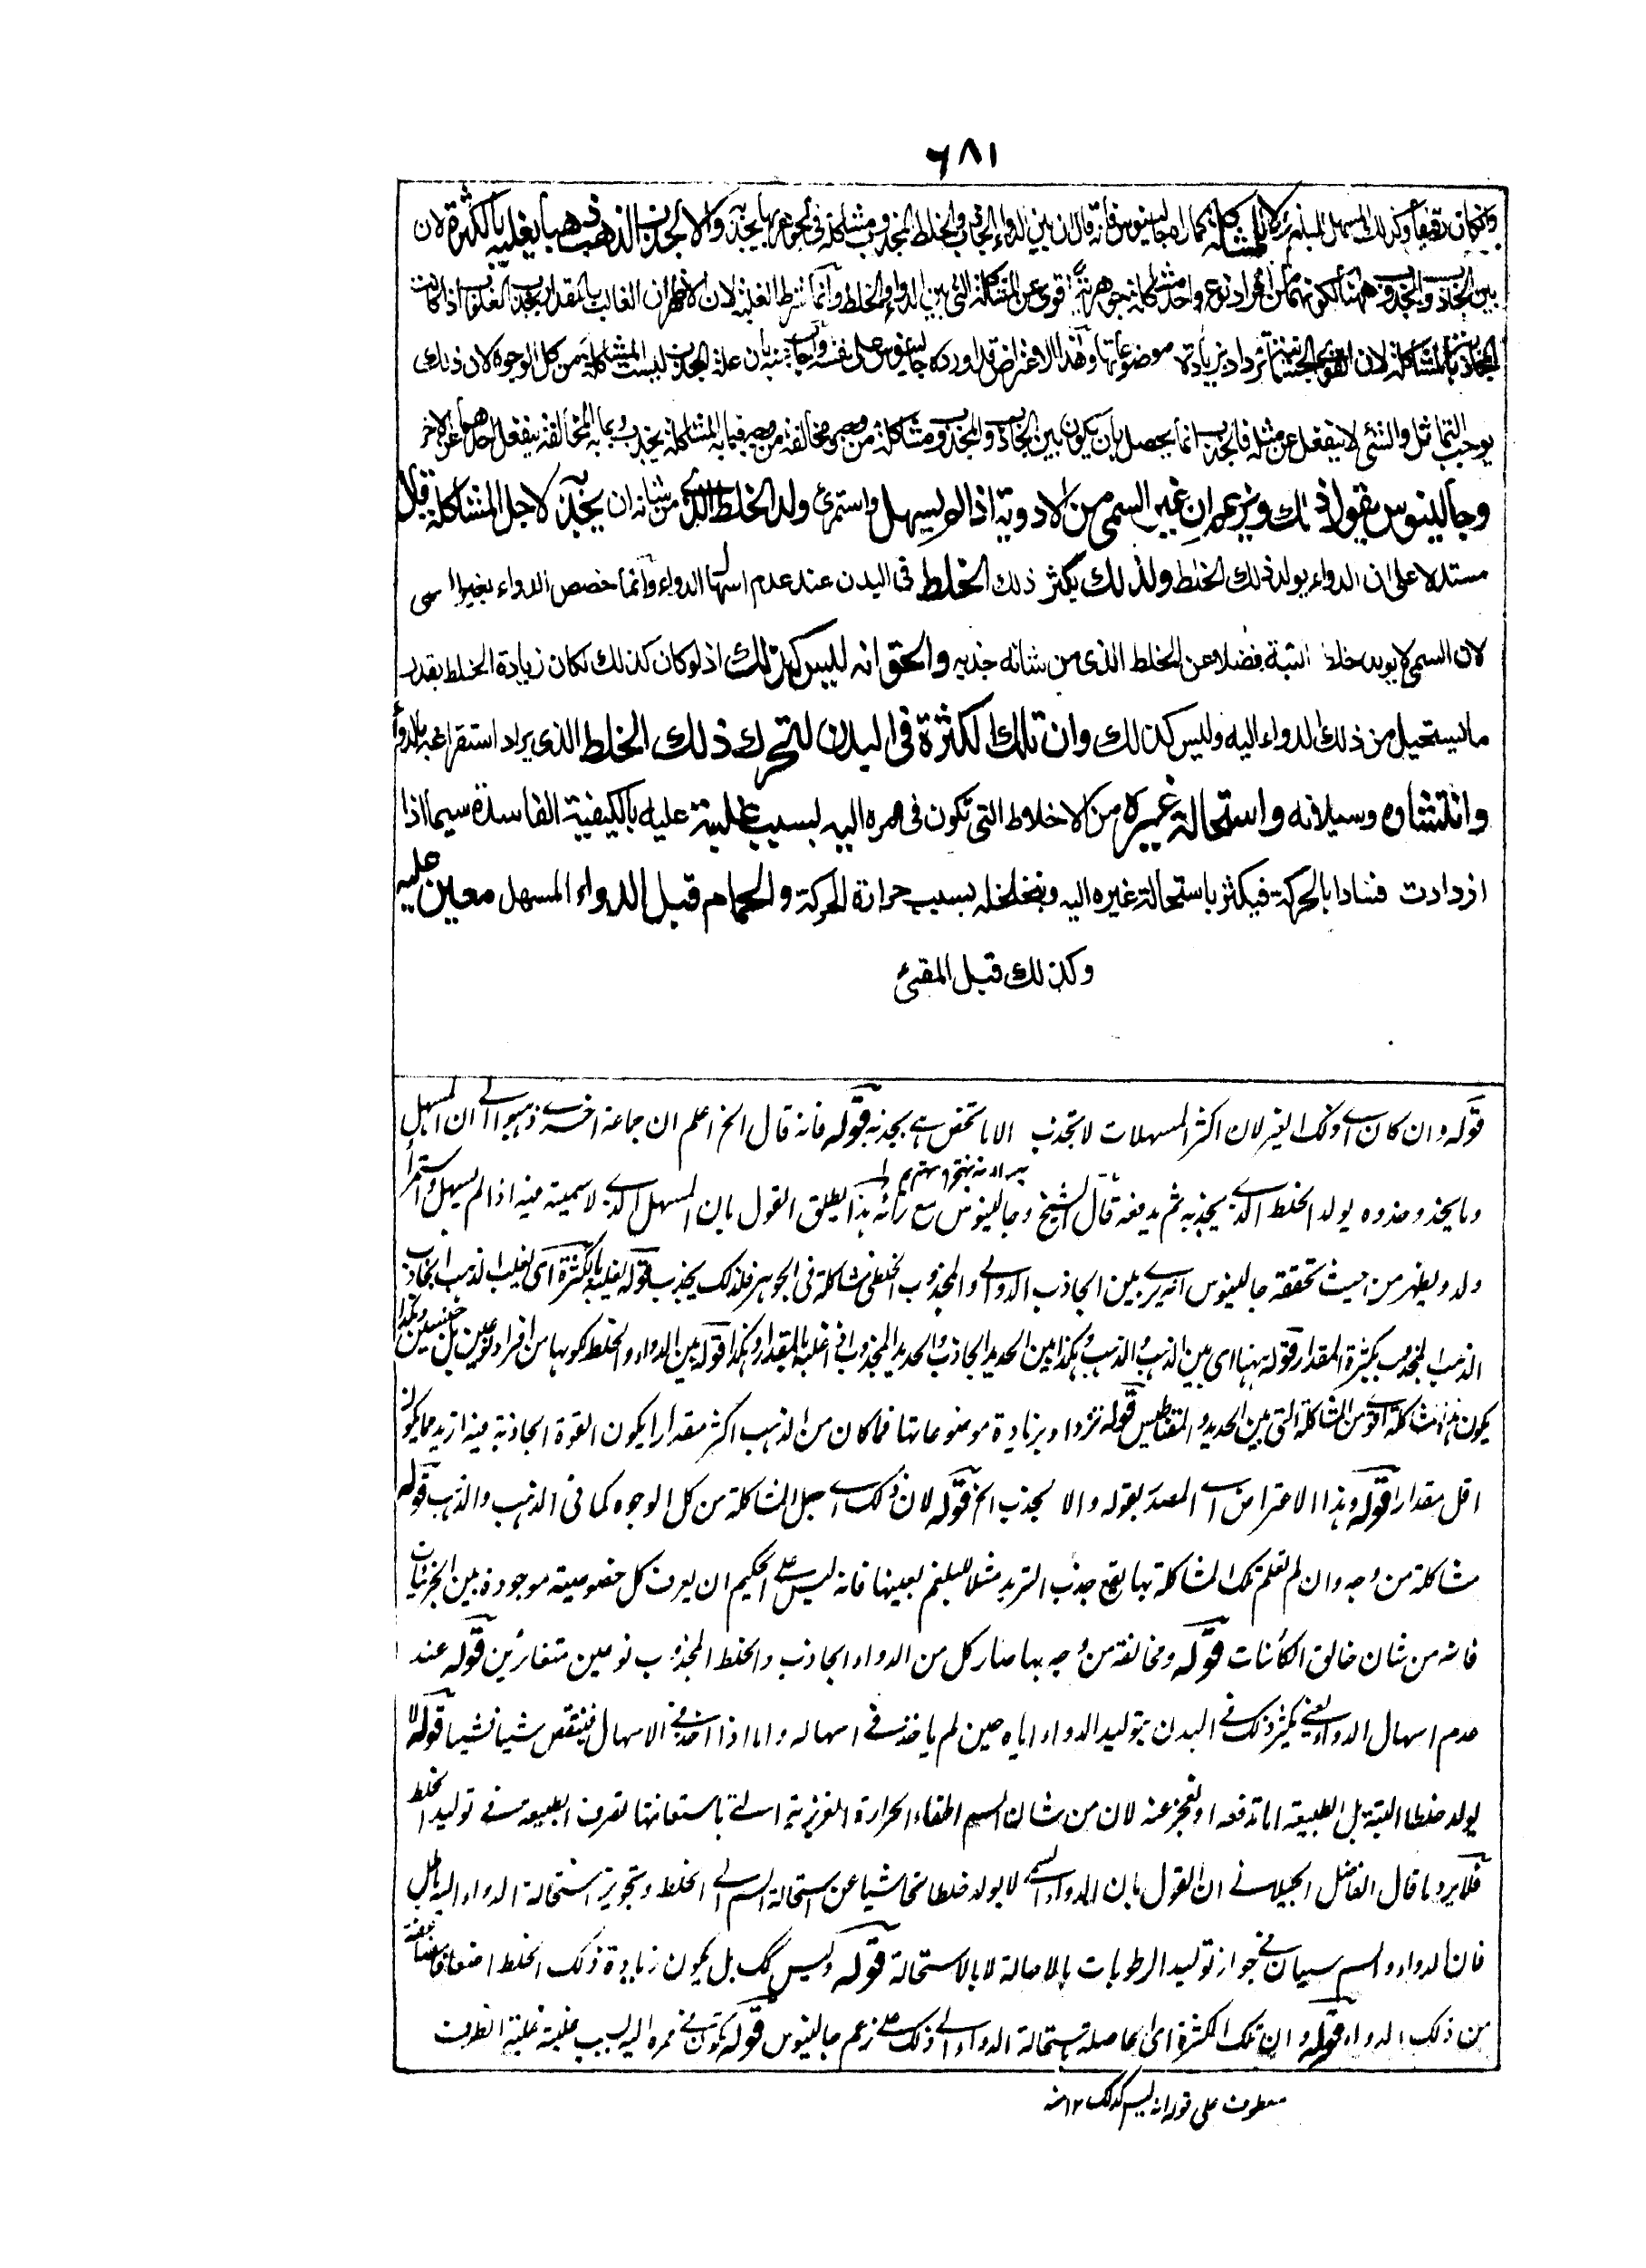 ٦٨١
وان كان رقيقا وكذلك المسهل للبلغم لا للمشاكلة كما قال جالينوس فانه قال ان بين الدواء الجاذب والخلط المجذوب مشاكلة في الجوهر بها يجذبه والا لجذب الذهب ذهبا يغلبه بالكثرة لان
بين الجاذب والمجذوب ههنا لكونهما من افراد نوع واحد مشاكلة جوهرية اقوى من المشاكلة التي بين الدواء والخلط وانما شرط الغلبة لان الاظهر ان الغالب بالمقدار يجذب المغلوب اذا كانت
الجاذبية بالمشاكلة لان القوى الجسمية تزداد بزيادة موضوعاتها وهذا الاعتراض قد اورده جالينوس على نفسه واجاب عنه بان علة الجذب ليست المشاكلة من كل الوجوه لان ذلك
يوجب التماثل والشئ لا ينفعل عن مثله فالجذب انما يحصل بان يكون بين الجاذب والمجذوب مشاكلة من وجه ومخالفة من وجه فبما به المشاكلة يجذب وبما به المخالفة ينفعل احدهما عن الاخر
وجالينوس يقول ذلك ويزعم ان غير السمى من الادوية اذا لم يسهل واستمرئ ولد الخلط الذى من شانه ان يجذبه لاجل المشاكلة قيل
مستدلا على ان الدواء يولد ذلك الخلط ولذلك يكثر ذلك الخلط فى البدن عند عدم اسهال الدواء وانما خصص الدواء بغير السمى
لان السمى لا يولد خلطا البتة فضلا عن الخلط الذى من شانه جذبه والحق انه ليس كذلك اذ لو كان كذلك لكان زيادة الخلط بقدر
ما يستحيل من ذلك الدواء اليه وليس كذلك وان تلك الكثرة فى البدن لتحرك ذلك الخلط الذى يراد استفراغه بالدواء
وانتشاره وسيلانه واستحالة غيره من الاخلاط التى تكون فى ممره اليه لسبب غلبته عليه بالكيفية الفاسدة سيما اذا
ازدادت فسادا بالحركة فيكثر باستحالة غيره اليه وبتخلخله بسبب حرارة الحركة والحمام قبل الدواء المسهل معين عليه
وكذلك قبل المقئ
قوله وان كان اى ذلك الغير لان اكثر المسهلات لا تجذب الا ما تختص هى بجذبه قوله فانه قال الخ اعلم ان جماعة اخرى ذهبوا الى ان المسهل
وما يحذو حذوه يولد الخلط الذى يجذبه ثم يدفعه قال الشيخ وجالينوس مع رائه هذا يطلق القول بان المسهل الذى لا سمية فيه اذا لم يسهل واستمرأ
ولد ويظهر من حيث تحققه جالينوس انه يرى بين الجاذب الدوائى والمجذوب الخلطى مشاكلة فى الجوهر فلذلك يجذب قوله يغلبه بالكثرة اى يغلب الذهب الجاذب
الذهب المجذوب بكثرة المقدار قوله ههنا اى بين الذهب والذهب وهكذا بين الحديد الجاذب والحديد المجذوب اذا غلبه بالمقدار وهكذا قوله بين الدواء والخلط لكونهما من افراد نوعين بل جنسين وهكذا
يكون هذه المشاكلة اقوى من المشاكلة التى بين الحديد والمقناطيس قوله تزداد بزيادة موضوعاتها فما كان من الذهب اكثر مقدارا يكون القوة الجاذبة فيه ازيد مما يكون
اقل مقدارا قوله وهذا الاعتراض اى المصدر بقوله والا لجذب الخ قوله لان ذلك اى جعل المشاكلة من كل الوجوه كما فى الذهب والذهب قوله
مشاكلة من وجه وان لم نعلم تلك المشاكلة بها يقع جذب التربد مثلا للبلغم بعينها فانه ليس على الحكيم ان يعرف كل خصوصية موجودة بين الجزئيات
فانه من شان خالق الكائنات قوله ومخالفة من وجه بها صار كل من الدواء الجاذب والخلط المجذوب نوعين متغائرين قوله عند
عدم اسهال الدواء يعنى يكثر ذلك فى البدن بتوليد الدواء اياه حين لم ياخذ فى اسهاله واما اذا اخذ فى الاسهال فينقص شيئا فشيئا قوله لا
يولد خلطا البتة بل الطبيعة اما تدفعه او تعجز عنه لان من شان السم اطفاء الحرارة الغريزية التى باستعانتها تصرف الطبيعة فى توليد الخلط
فلا يرد ما قال الفاضل الجيلانى ان القول بان الدواء السمى لا يولد خلطا تحاشيا عن استحالة السم الى الخلط وتجويز استحالة الدواء اليه باطل
فان الدواء والسم سيان فى جواز توليد الرطوبات بالاصالة لا بالاستحالة قوله وليس كك بل يكون زيادة ذلك الخلط اضعافا مضاعفة
من ذلك الدواء قوله وان تلك الكثرة اى الحاصلة باستحالة الدواء الى ذلك على زعم جالينوس قوله تكون فى ممره اليه لسبب غلبته غلبة الظرف
معطوف على قوله انه ليس كذلك ١٢ منه